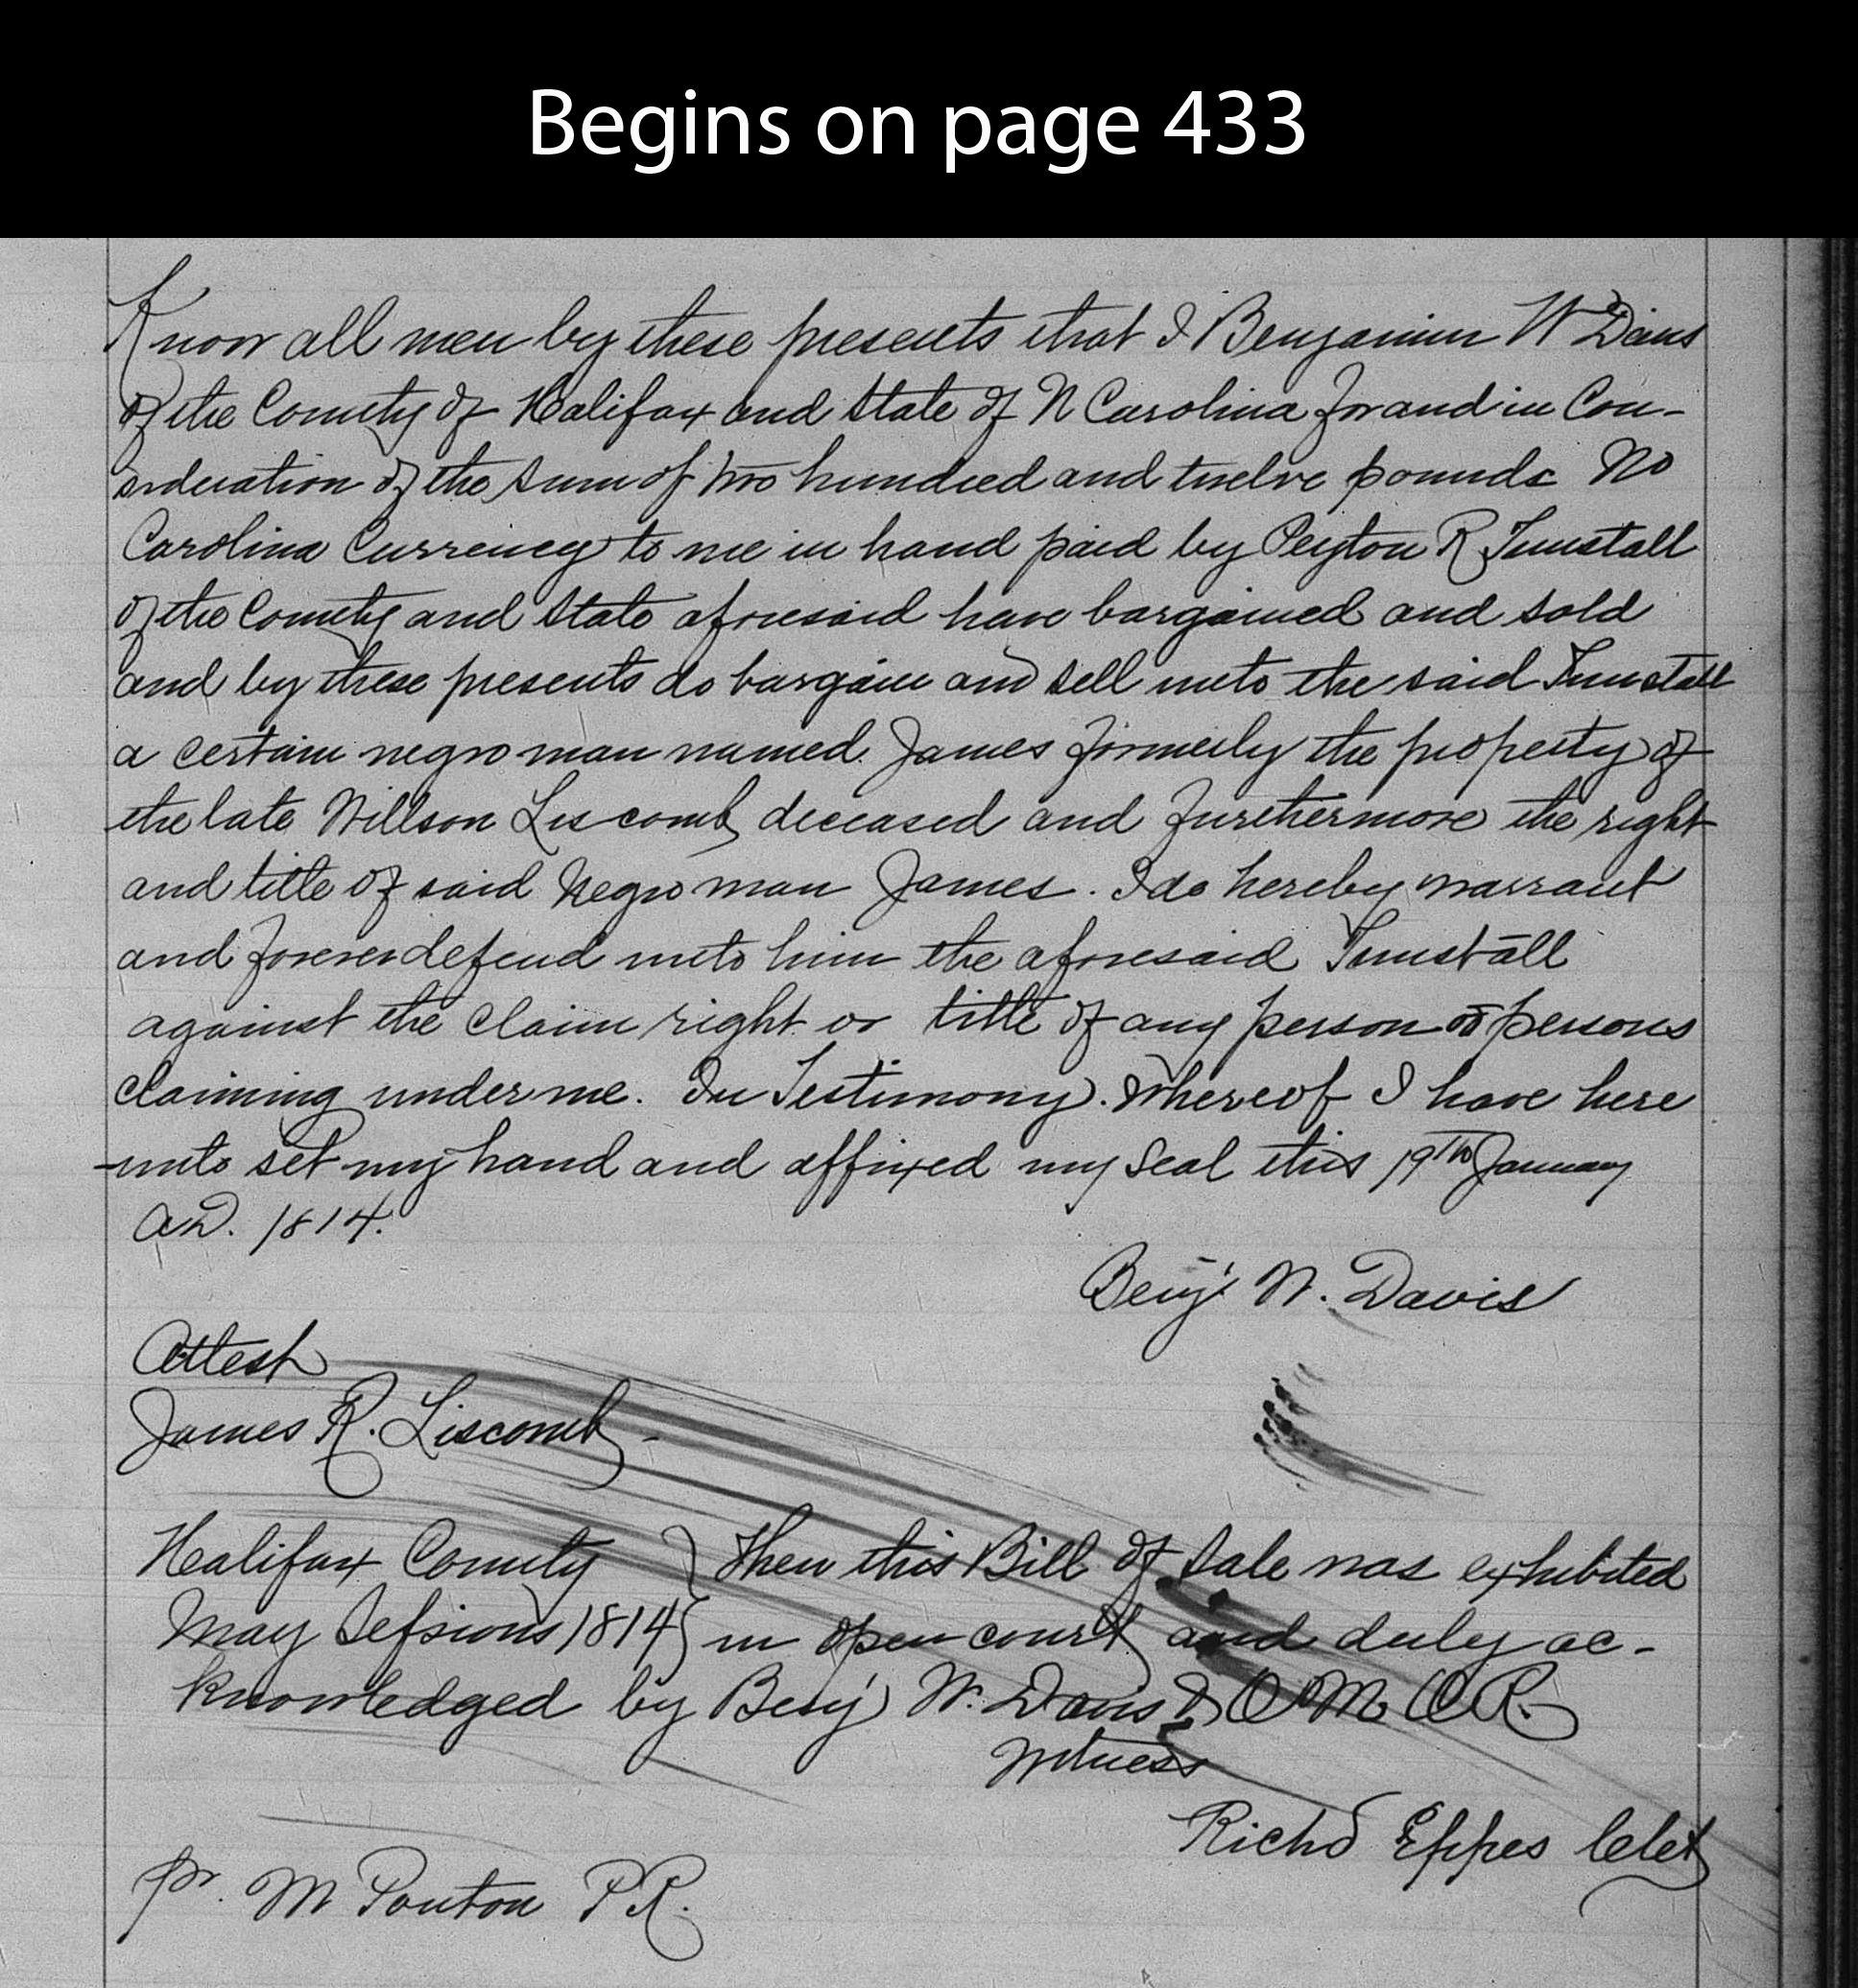 Begins on page 433
Know all men by these presents that I Benjamin W Davis
of the County of Halifax and State of N Carolina for and in Con-
sideration of the sum of two hundred and twelve pounds No
Carolina Currency to me in hand paid by Peyton R Tunstall
of the County and State aforesaid have bargained and sold
and by these presents do bargain and sell unto the said Tunstall
a certain negro man named James formerly the property of
the late Willson Liscomb deceased and furthermore the right
and title of said Negro man James. I do hereby warrant
and forever defend unto him the aforesaid Tunstall
against the claim right or title of any person or persons
claiming under me. In Testimony Whereof I have here
-unto set my hand and affixed my Seal this 19th January
AD. 1814.
Benj. W. Davis
Attest
James R. Liscomb
Halifax County } Then this Bill of Sale was exhibited
May Sessions 1814 } in open court and duly ac-
knowledged by Benj W. Davis & O M C R.
Witness
Richd Eppes Clk
pr. M Ponton P.R.